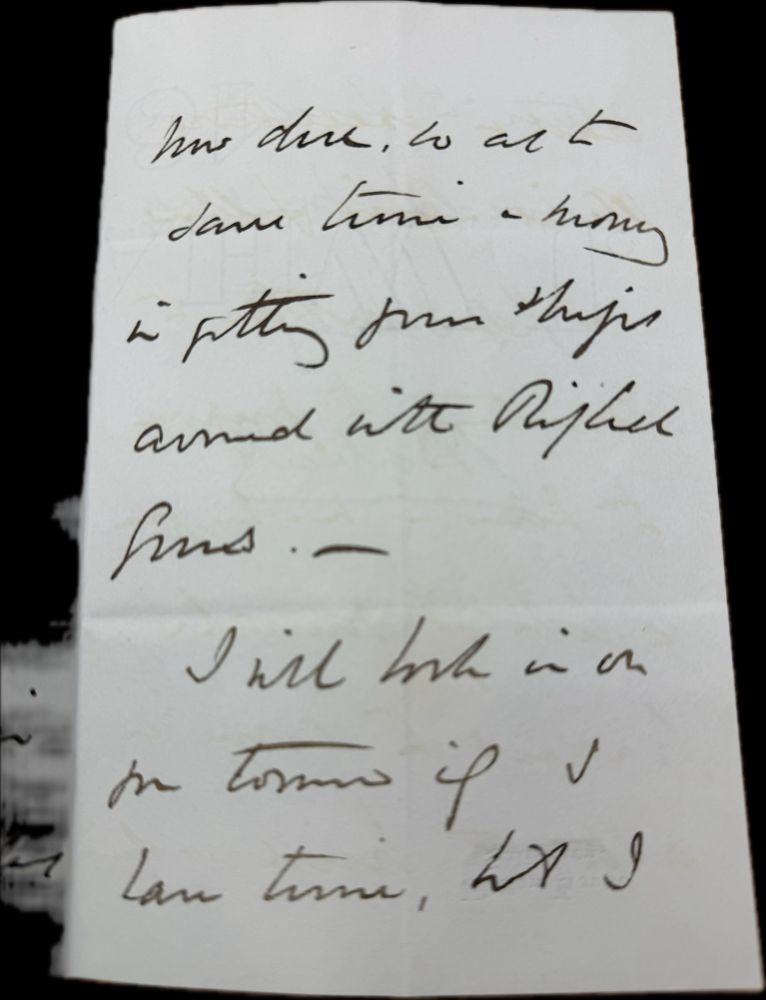 now done, so as to
save time & money
in getting your ships
armed with Rifled
Guns. —
I will look in on
you tomorrow if I
have time, but I